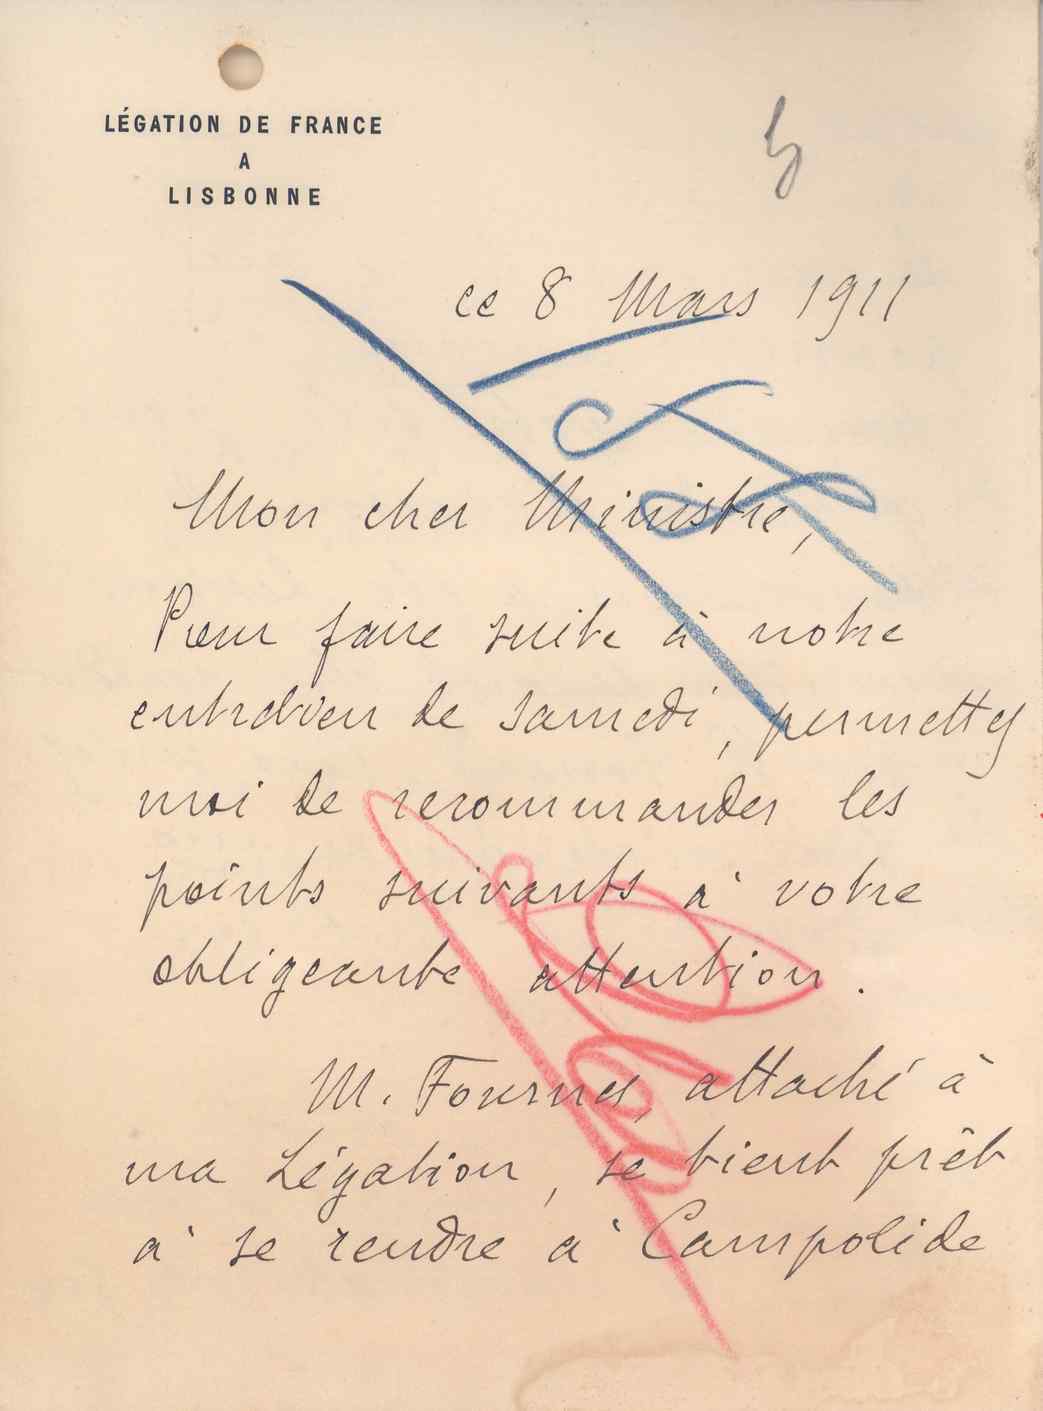 LÉGATION DE FRANCE
A
LISBONNE
ce 8 Mars 1911
Mon cher Ministre,
Pour faire suite à notre
entretien de samedi, permettez
moi de recommander les
points suivants à votre
obligeante attention.
M. Fournes, attaché à
ma Légation, se tient prêt
à se rendre à Campolide